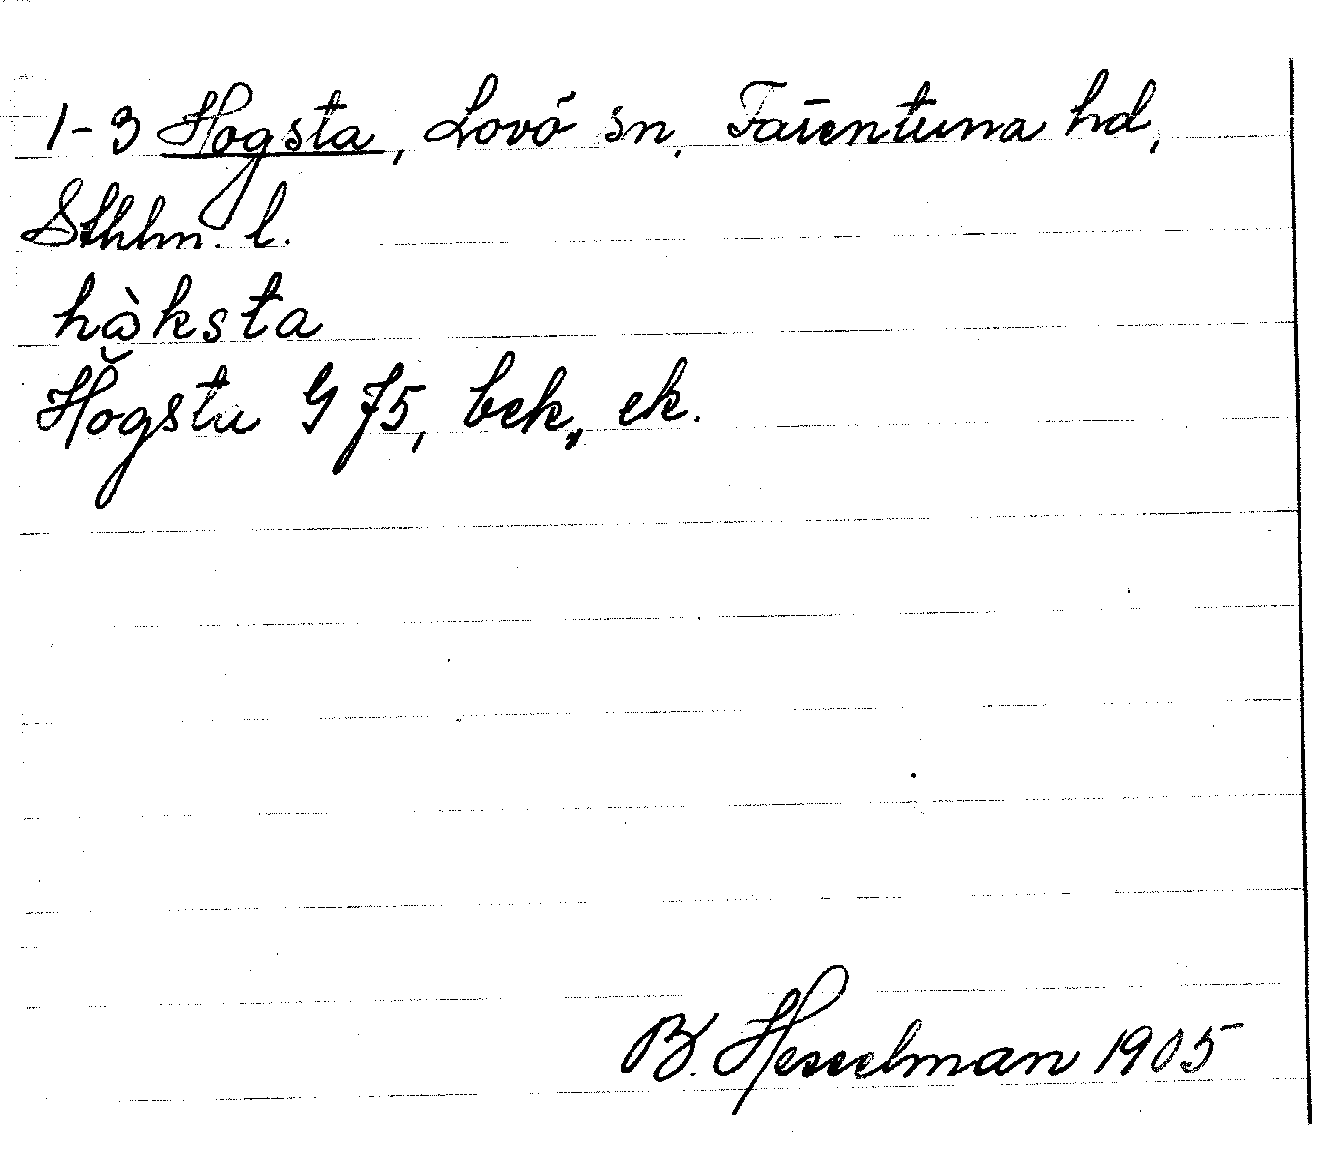 1-3 Hogsta, Lovö sn, Färentuna hd,
Sthlm. l.
hàksta
Hŏgsta G 75, bek., ek.
B. Hesselman 1905